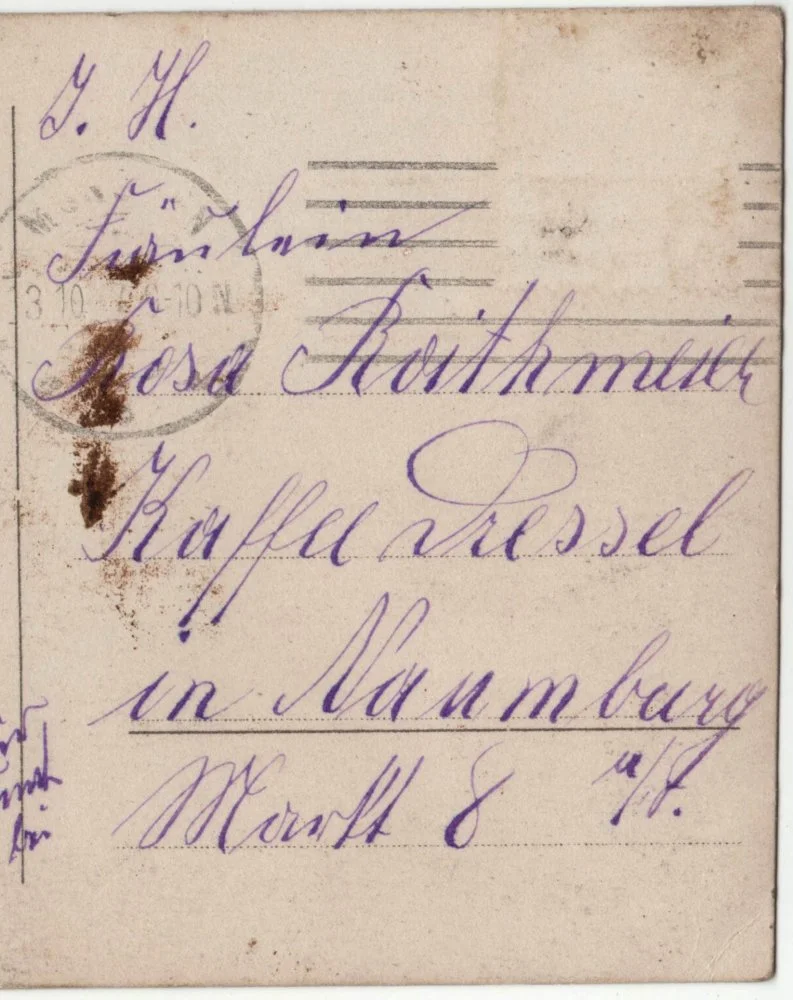 J. H.
Fräulein
Rosa Roithmeier
Kaffee Dressel
in Naumburg
a/S.
Markt 8
3.10
-10 N
bei